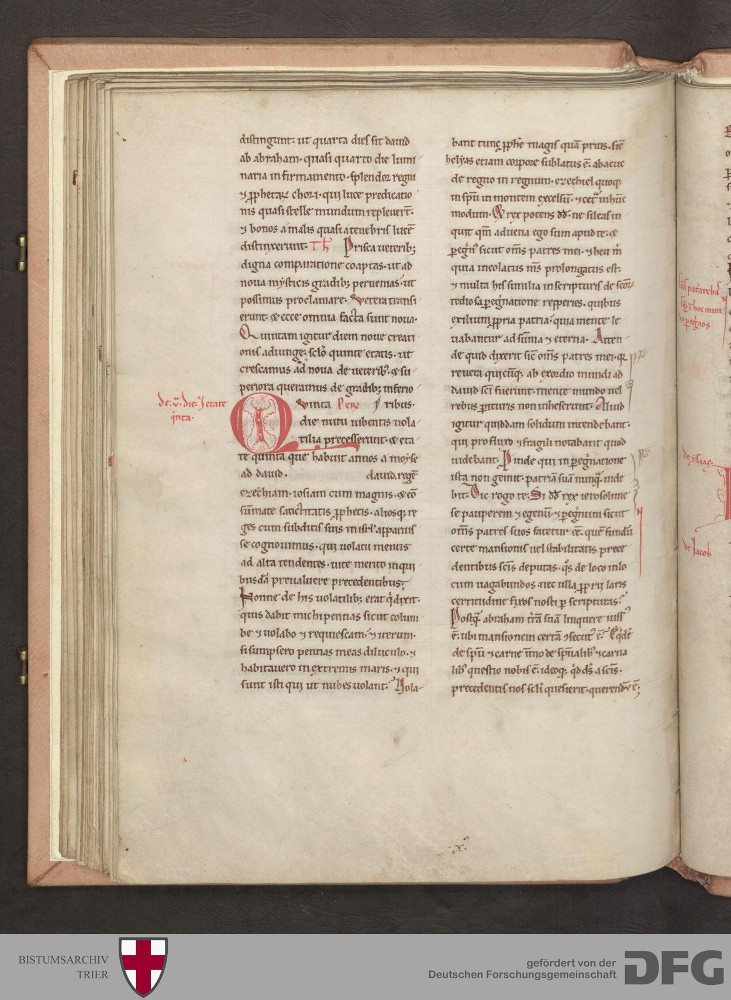 distingunt. ut quarta dies sit dauid
ab abraham. quasi quarto die lumi
naria in firmamento. splendor regni
⁊ ꝓphetaꝝ chori. qui luce predicatio
nis quasi stelle mundum repleuerꝛ̄.
⁊ bonos a malis quasi a tenebris lucē
distinxerunt. Tħ Prisca ueterib;
digna comparatione coaptas. ut ad
noua mysticis gradib; peruenias. ut
possimus proclamare. Vetera transi
erunt. ⁊ ecce omnia facta sunt noua.
Quintam igitur diem noue creati
onis adiunge. sc̄lo quinte etatis. ut
crescamus ad noua de ueterib;. ⁊ su
periora queramus de gradib; inferio
Quinta Peꝛ ribus.
die nutu iubentis uola
tilia precesserunt. ⁊ eta
te quinta que habuit annos a moyse
ad dauid. dauid. regē
ezechiam. iosiam cum magnis. ⁊ cō
sūmate sanctitatis ꝓphetis. aliosq; re
ges cum subditis suis in isrl̄ apparuis
se cognouimus. qui uolatu mentis
ad alta tendentes. uite merito in qui
busdā preualuere precedentibus.
Nonne de his uolatilib; erat q̄ dixit.
quis dabit michi pennas sicut colum
be ⁊ uolabo ⁊ requiescam. ⁊ iterum.
si sumpsero pennas meas diluculo. ⁊
habitauero in extremis maris. ⁊ qui
sunt isti qui ut nubes uolant. Uola
de. v. die ⁊ etate
q̄inta.
bant tunc ꝓphē magis quā prius. sic̄
helyas etiam corpore sublatus ē. abacuc
de regno in regnum. ezechiel quoq;
in sp̄m in montem excelsū. ⁊ cet̄i in hunc
modum. Et rex potens dd̄. ne sileas in
quit qm̄ aduena ego sum apud te. ⁊
peregn̄. sicut om̄s patres mei. ⁊ heu m̄
quia incolatus m̄s prolongatus est.
⁊ multa his similia in scripturis de scōꝝ
tedio ⁊ peg̃natione repperies. quibus
exilium ꝓpria patria. quia mente le
uabantur ad sūma ⁊ eterna. Atten
de quid dixerit sic̄ om̄s patres mei. q̄
reuera quicūq; ab exordio mundi ad
dauid sc̄i fuerunt. mente mundo uel
rebus perituris non inheserunt. Aliud
igitur quoddam solidum intendebant.
qui pro fluxo ⁊ fragili notabant quod
uidebant. Proinde qui in peg̃natione
ista non gemit. patriā suā nunq; uide
bit. Dic rogo te. Si dd̄ rex ierosolime
se pauperem ⁊ egenū. ⁊ peg̃num sicut
om̄s patres suos fatetur eē. que fundū
certe mansionis uel stabilitatis prece
dentibus sc̄is deputas. q̄s de loco in lo
cum uagabundos nec ulla ꝓprii laris
certitudine fixos nosti per scripturas.
Postq̄ abraham t̄rā suā linquere iuss̄
ē. ubi mansionem certā ⁊secut̄ ē.
de sp̄u ⁊ carne īmo de sp̄ualib; ⁊ carna
lib; questio nobis ē. ideoq; a sc̄is.
precedentis nos sc̄li quesierit. querendū ē.
de Jacob
BISTUMSARCHIV
TRIER
gefördert von der
Deutschen Forschungsgemeinschaft
DFG